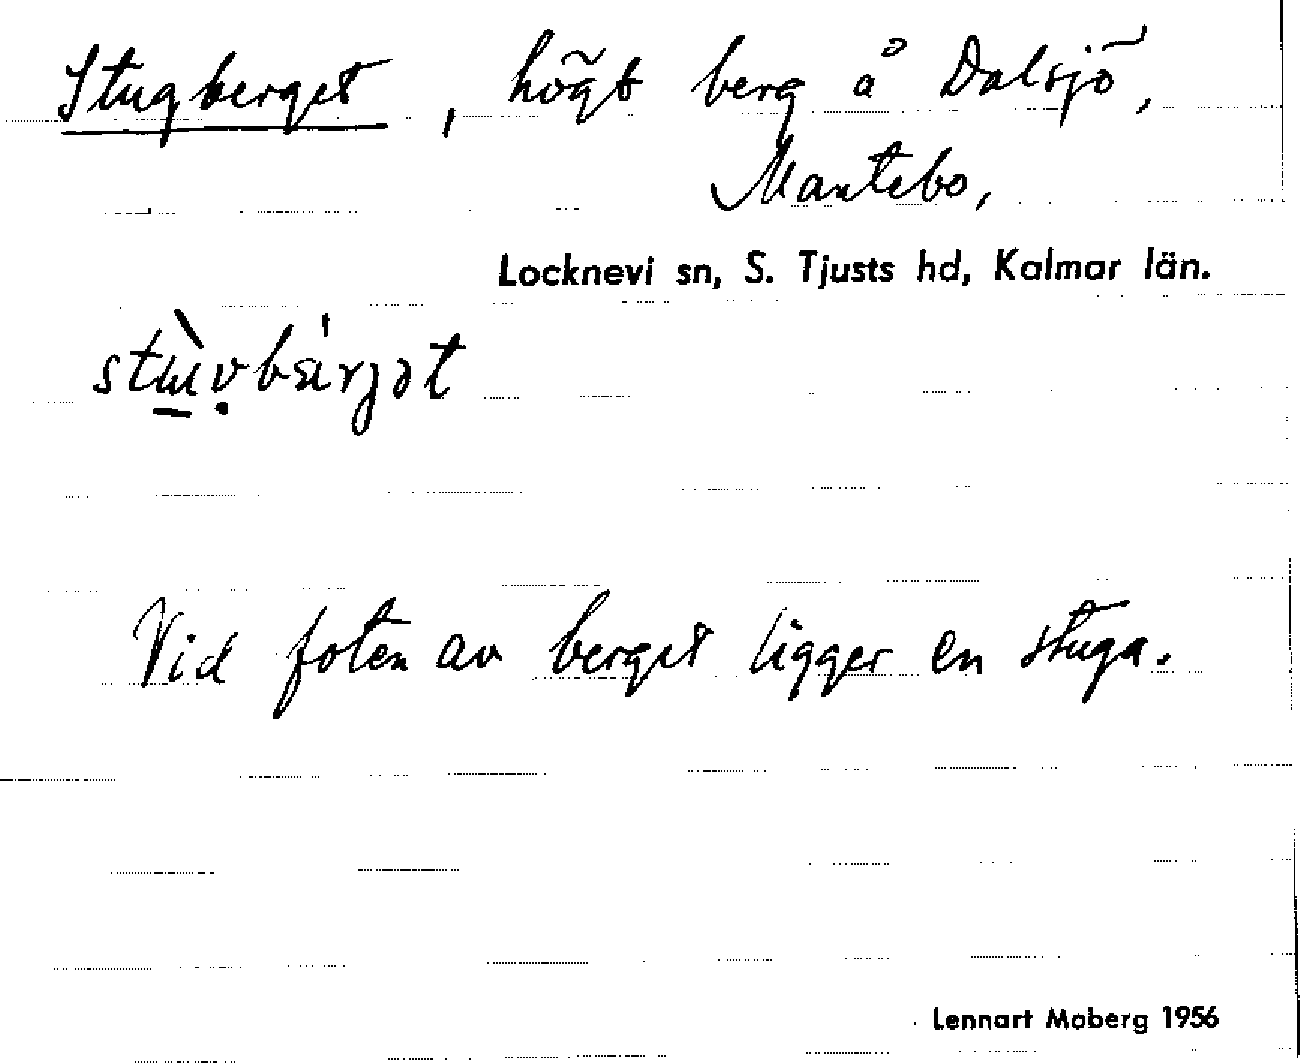 Stugberget, högt berg å Dalsjö,
Mantebo,
Locknevi sn, S. Tjusts hd, Kalmar län.
Vid foten av berget ligger en stuga.
Lennart Moberg 1956